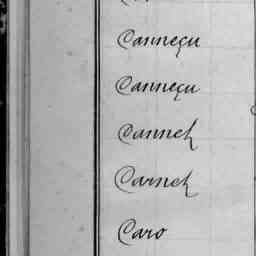 Canneçu
Canneçu
Cannet
Carnet
Caro